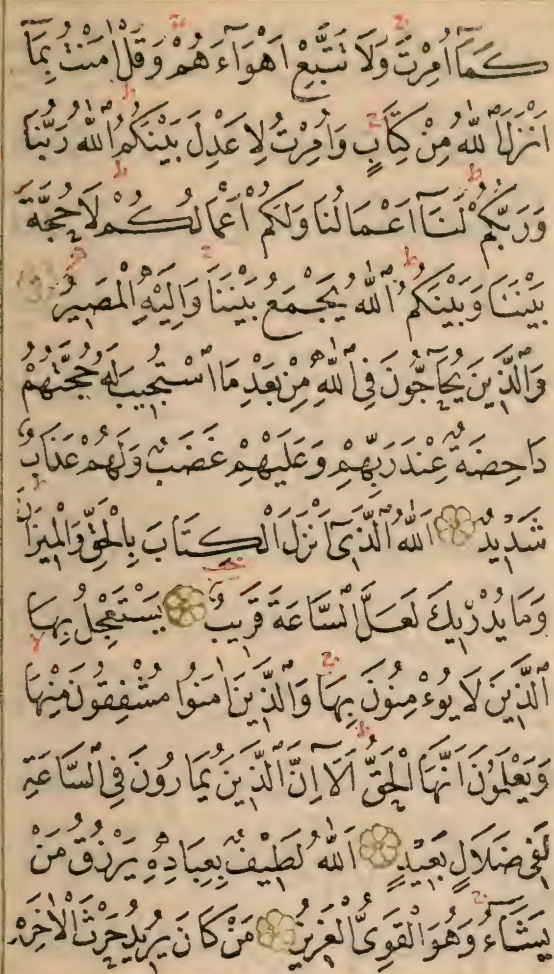 كَمَآ اُمِرْتَ وَلَا تَتَّبِعْ اَهْوَآءَهُمْ وَقُلْ اٰمَنْتُ بِمَآ
اَنْزَلَ اللّٰهُ مِنْ كِتَابٍ وَاُمِرْتُ لِاَعْدِلَ بَيْنَكُمُ اللّٰهُ رَبُّنَا
وَرَبُّكُمْ لَنَآ اَعْمَالُنَا وَلَكُمْ اَعْمَالُكُمْ لَا حُجَّةَ
بَيْنَنَا وَبَيْنَكُمُ اللّٰهُ يَجْمَعُ بَيْنَنَا وَاِلَيْهِ الْمَصِيرُ
وَالَّذِينَ يُحَآجُّونَ فِي اللّٰهِ مِنْ بَعْدِ مَا اسْتُجِيبَ لَهُ حُجَّتُهُمْ
دَاحِضَةٌ عِنْدَ رَبِّهِمْ وَعَلَيْهِمْ غَضَبٌ وَلَهُمْ عَذَابٌ
شَدِيدٌ اَللّٰهُ الَّذِىٓ اَنْزَلَ الْكِتَابَ بِالْحَقِّ وَالْمِيزَانَ
وَمَا يُدْرِيكَ لَعَلَّ السَّاعَةَ قَرِيبٌ يَسْتَعْجِلُ بِهَا
الَّذِينَ لَا يُوءْمِنُونَ بِهَا وَالَّذِينَ اٰمَنُوا مُشْفِقُونَ مِنْهَا
وَيَعْلَمُونَ اَنَّهَا الْحَقُّ اَلَآ اِنَّ الَّذِينَ يُمَارُونَ فِي السَّاعَةِ
لَفِى ضَلَالٍ بَعِيدٍ اَللّٰهُ لَطِيفٌ بِعِبَادِهِ يَرْزُقُ مَنْ
يَشَآءُ وَهُوَ الْقَوِىُّ الْعَزِيزُ مَنْ كَانَ يُرِيدُ حَرْثَ الْاٰخِرَةِ